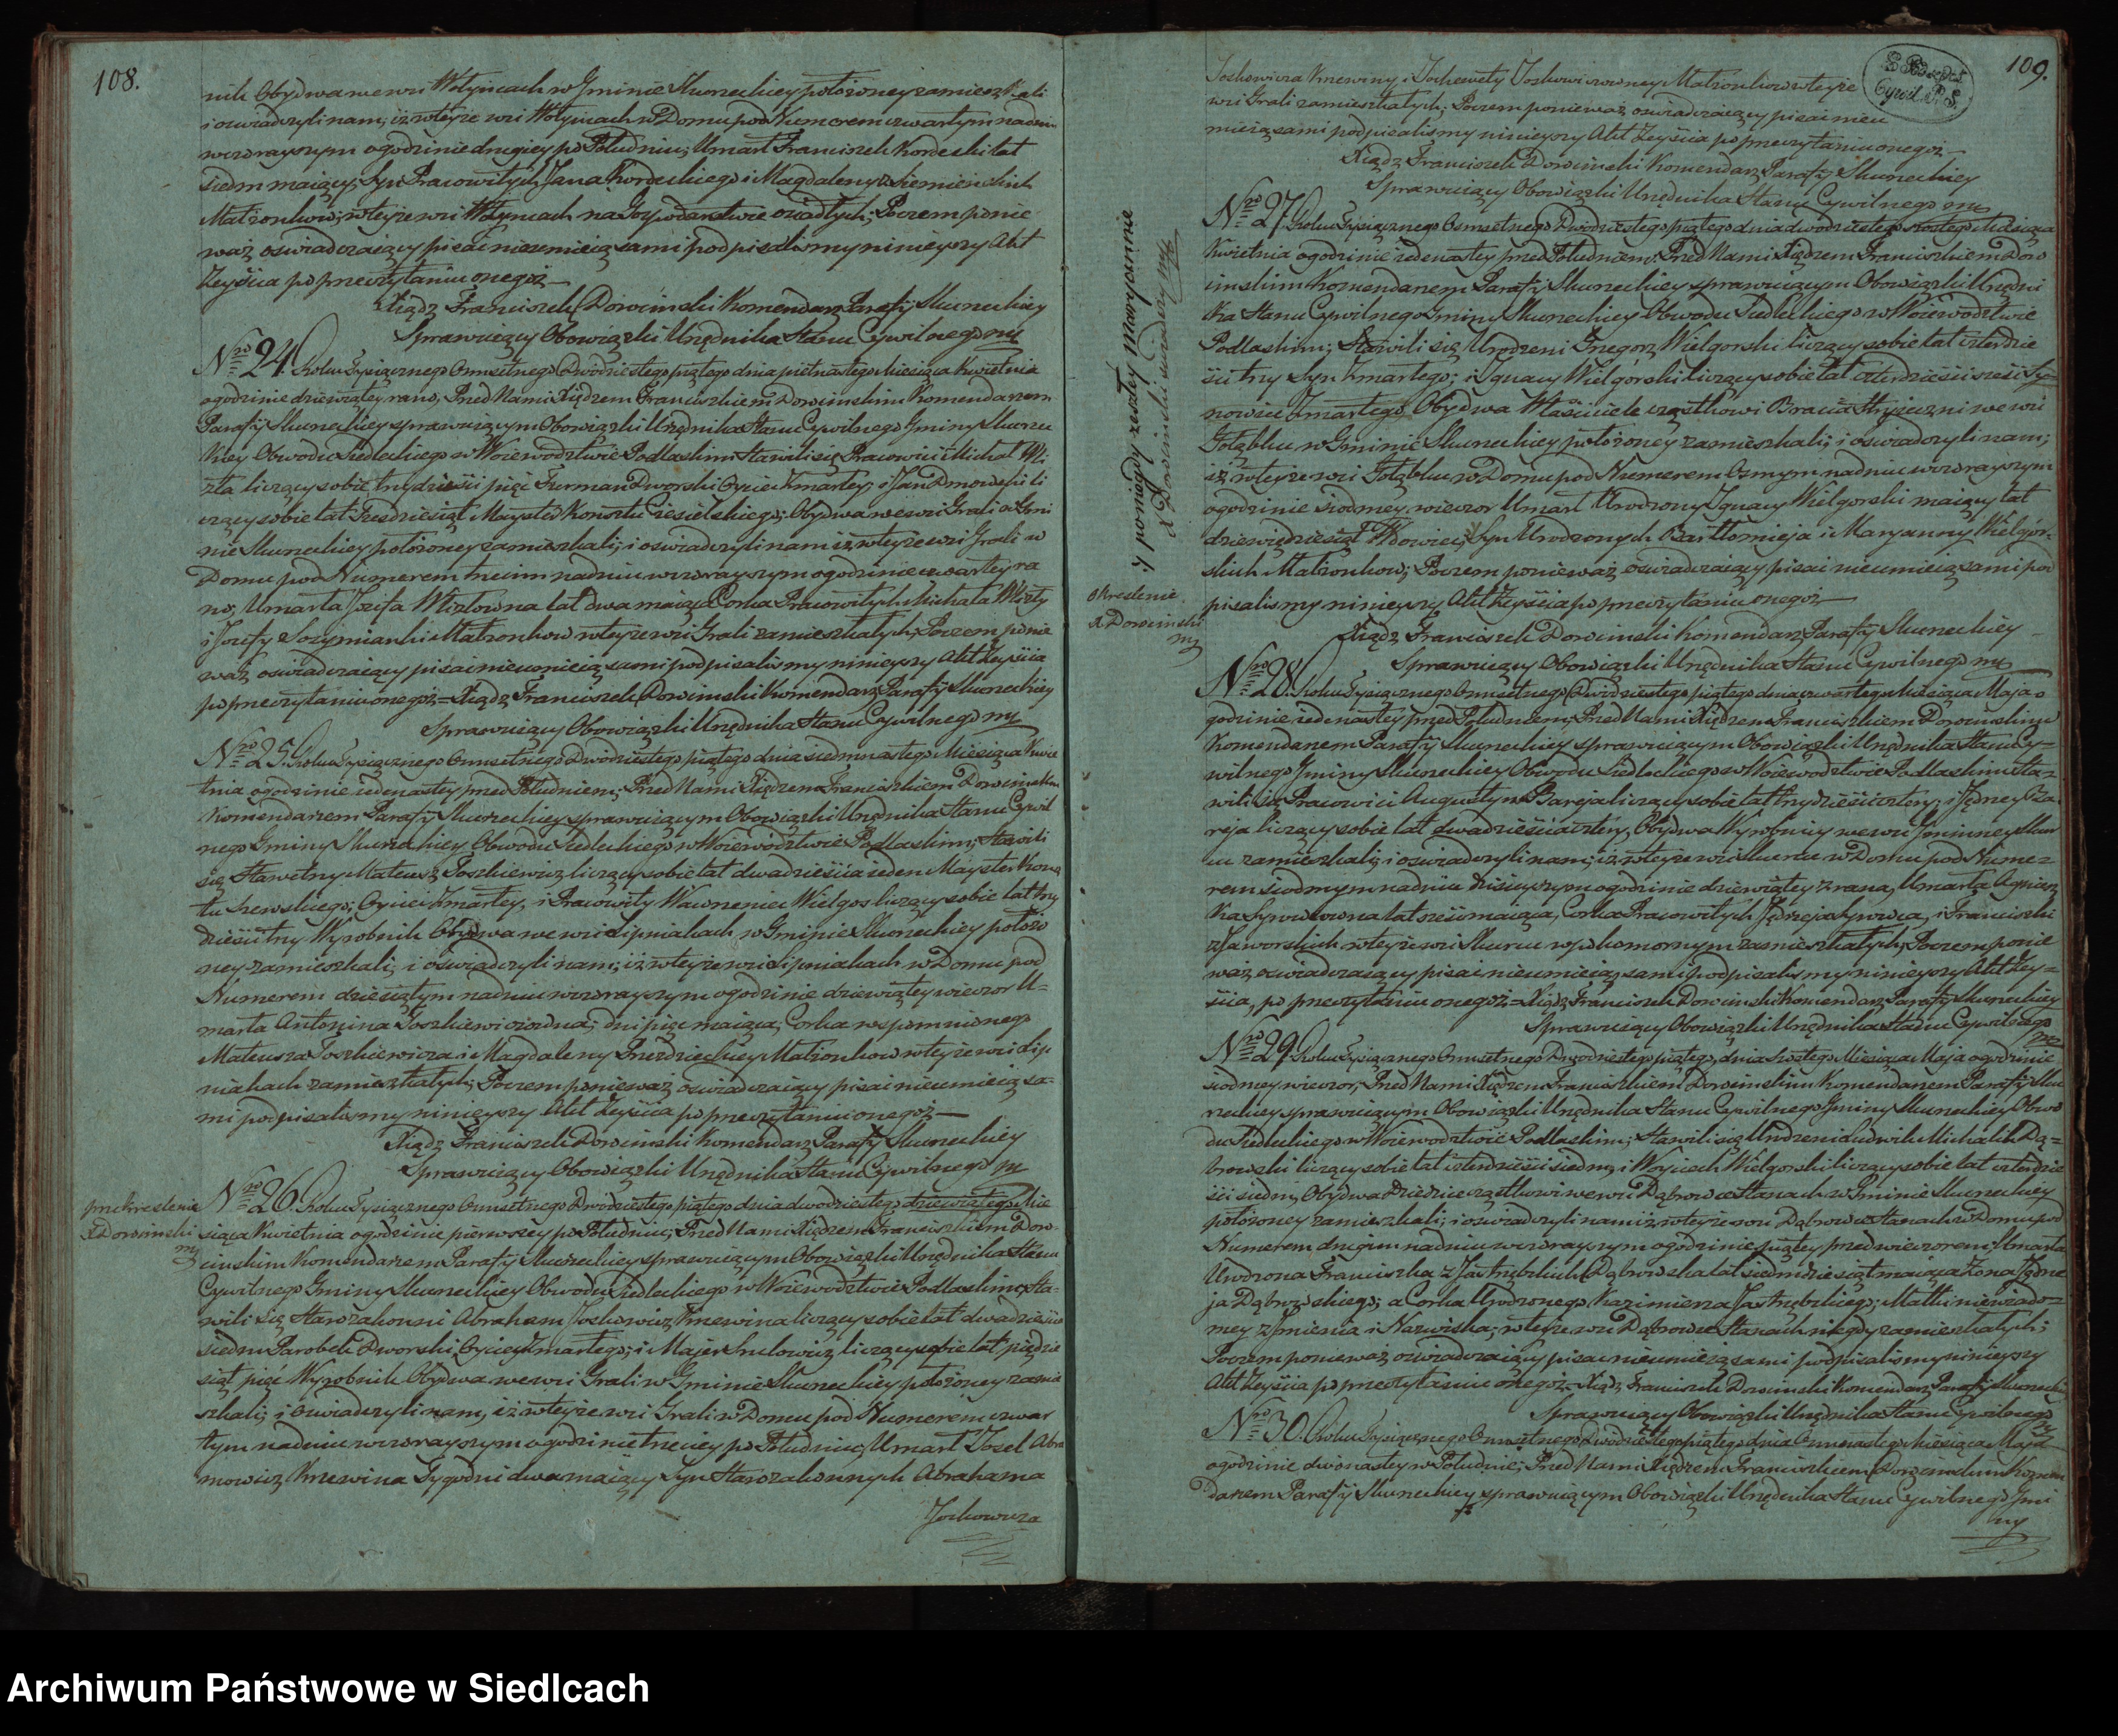 108.
nik Obydwa we wsi Wołyńcach w Gminie Skurzeckiey położoney zamieszkali
i oświadczyli nam; iż w teyże wsi Wołyncach w Domu pod Numerem czwartym na dniu
wczorayszym o godzinie drugiey po Południu; Umarł Franciszek Kordeski lat
siedm maiący, Syn Pracowitych Jana Kordeckiego i Magdaleny z
Małżonków; w teyże wsi Wołyncach na Gospodarstwie osiadłych; Poczem ponie
waż oświadczaiący pisać nieumieią sami podpisaliśmy ninieyszy Akt
Zeyścia po przeczytaniu onegoż —
Xiądz Franciszek Dorociński Komendarz Parafÿ Skurzeckiey
Sprawuiący Obowiązki Urzędnika Stanu Cywilnego mp
Nro 24. Roku Tysiącznego Osmsetnego Dwódziestego piątego dnia piętnastego Miesiąca Kwietnia
o godzinie dziewiątey rano, Przed Nami Xiędzem Franciszkiem Dorocinskim Komendarzem
Parafÿ Skurzeckiey sprawuiącym Obowiązki Urzędnika Stanu Cywilnego Gminy Skurzec
kiey Obwodu Siedleckiego w Woiewodztwie Podlaskim Stawili się Pracowici Michał Wi
zła liczący sobie trzydzieści pięć Furman Dworski Oyciec Zmarłey, i Jan Dmowski li
czący sobie lat Trzydzieści Mayster Konsztu Ciesielskiego; Obydwa we wsi Grali w Gmi
nie Skurzeckiey położoney zamieszkali; i oświadczyli nam iż w teyże wsi Grali w
Domu pod Numerem trzecim na dniu wczorayszym o godzinie czwartey ra
no; Umarła Jozefa Wizłowna lat dwa maiąca Corka Pracowitych Michała Wizły
i Jozefy Małżonkow w teyże wsi Grali zamieszkałych; Poczem ponie
waż oświadczaiący pisać nieumieią sami podpisaliśmy ninieyszy Akt Zeyścia
po przeczytaniu onegoż = Xiądz Franciszek Dorocinski Komendarz Parafÿ Skurzeckiey
Sprawuiący Obowiązki Urzędnika Stanu Cywilnego mp
Nro 25. Roku Tysiącznego Osmsetnego Dwódziestego piątego dnia siedmnastego Miesiąca Kwie
tnia o godzinie iedenastey przed Południem; Przed Nami Xiędzem Franciszkiem Dorocinskim
Komendarzem Parafÿ Skurzeckiey sprawuiącym Obowiązki Urzędnika Stanu Cywil
nego Gminy Skurzeckiey Obwodu Siedleckiego w Woiewództwie Podlaskim; Stawili
się Sławetny Mateusz Toszkiewicz liczący sobie lat dwadzieścia ieden Mayster Kon
sztu Szewskiego; Oyciec Zmarłey, i Pracowity Wawrzeniec Wielgos liczący sobie lat trzy
dzieści trzy Wyrobnik Obydwa we wsi Lipniakach w Gminie Skurzeckiey położo
ney zamieszkali; i oświadczyli nam; iż w teyże wsi Lipniakach w Domu pod
Numerem dziesiątym na dniu wczorayszym o godzinie dziewiątey wieczor U=
marła Antonina Toszkiewiczowna; dni pięć maiąca, Corka wspomnionego
Mateusza Toszkiewicza i Magdaleny Małżonkow w teyże wsi Lip
niakach zamieszkałych; Poczem ponieważ oświadczaiący pisać nieumieią sa=
mi podpisaliśmy ninieyszy Akt Zeyścia po przeczytaniu onegoż —
Xiądz Franciszek Dorocinski Komendarz Parafÿ Skurzeckiey
Sprawuiący Obowiązki Urzędnika Stanu Cywilnego mp
przekreslenie
X Dorocinski
mp
Nro 26. Roku Tysiącznego Osmsetnego Dwodziestego piątego dnia dwodziestego dziewiątego Mie
siąca Kwietnia o godzinie pierwszey po Południu; Przed Nami Xiędzem Franciszkiem Doro-
cinskim Komendarzem Parafÿ Skurzeckiey sprawuiącym Obowiązki Urzędnika Stanu
Cywilnego Gminy Skurzeckiey Obwodu Siedleckiego w Woiewodztwie Podlaskim; Sta=
wili się Starozakonni Abraham Joskowicz Krzewina liczący sobie lat dwadzieścia
siedm Parobek Dworski Oyciec Zmarłego; i Majer Srulowicz liczący sobie lat pięćdzie
siąt pięć Wyrobnik Obydwa we wsi Grali w Gminie Skurzeckiey położoney zamie
szkali; i oświadczyli nam, iż w teyże wsi Grali w Domu pod Numerem czwar
tym na dniu wczorayszym o godzinie trzeciey po Południu; Umarł Josel Abra
mowicz Krzewina Tygodni dwa maiący Syn Starozakonnych Abrahama
Joskowicza
109.
Cywil. P. S.
Joskowicza Krzewiny i Jochewety Joskowiczowney Małżonkow w teyże
wsi Grali zamieszkałych; Poczem ponieważ oświadczaiący pisać nieu
mieią sami podpisaliśmy ninieyszy Akt Zeyścia po przeczytaniu onegoż —
Xiądz Franciszek Dorocinski Komendarz Parafÿ Skurzeckiey
Sprawuiący Obowiązki Urzędnika Stanu Cywilnego mp
Nro 27. Roku Tysiącznego Osmsetnego Dwódziestego piątego dnia dwodziestego szostego Miesiąca
Kwietnia o godzinie iedenastey przed Południem; Przed Nami Xiędzem Franciszkiem Doro
cinskim Komendarzem Parafÿ Skurzeckiey sprawuiącym Obowiązki Urzędni
ka Stanu Cywilnego Gminy Skurzeckiey Obwodu Siedleckiego w Woiewództwie
Podlaskim; Stawili się Urodzeni Grzegorz Wielgorski liczący sobie lat czterdzie
ści trzy Syn Zmarłego; i Ignacy Wielgórski liczący sobie lat czterdzieści sześć Sy=
nowiec Zmarłego Obydwa Właściciele cząstkowi Bracia Stryieczni we wsi
Gołąbku w Gminie Skurzeckiey położoney zamieszkali; i oświadczyli nam;
iż w teyże wsi Gołąbku w Domu pod Numerem Osmym na dniu wczorayszym
o godzinie siodmey wieczor Umarł Urodzony Ignacy Wielgorski maiący lat
dziewiędziesiąt Wdowiec; Syn Urodzonych Bartłomieja i Maryanny Wielgór-
skich Małżonkow; Poczem ponieważ oświadczaiący pisać nieumieią sami pod
pisaliśmy ninieyszy Akt Zeyścia po przeczytaniu onegoż —
Xiądz Franciszek Dorocinski Komendarz Parafÿ Skurzeckiey
Sprawuiący Obowiązki Urzędnika Stanu Cywilnego mp
po niegdy zeszłey Maryannie
X Dorocinski
X Dorocinski
mp
Nro 28. Roku Tysiącznego Osmsetnego Dwódziestego piątego dnia czwartego Miesiąca Maja o
godzinie iedenastey przed Południem; Przed Nami Xiędzem Franciszkiem Dorocinskim
Komendarzem Parafÿ Skurzeckiey sprawuiącym Obowiązki Urzędnika Stanu Cy=
wilnego Gminy Skurzeckiey Obwodu Siedleckiego w Woiewodztwie Podlaskim Sta=
wili się Pracowici Augustyn Bareja liczący sobie lat trzydzieści cztery; i Jędrzey Ba
reja liczący sobie lat dwadzieścia cztery, Obydwa Wyrobnicy we wsi Gminney Skur
cu zamieszkali; i oświadczyli nam; iż w teyże wsi Skurcu w Domu pod Nume=
rem siodmym na dniu dzisieyszym o godzinie dziewiątey z rana, Umarła Agniesz
ka lat sześć maiąca, Corka Pracowitych Jędrzeja i Franciszki
z Jaworskich w teyże wsi Skurcu w pokomornym zamieszkałych; Poczem ponie
waż oświadczaiący pisać nieumieią; sami podpisaliśmy ninieyszy Akt Zey=
ścia, po przeczytaniu onegoż = Xiądz Franciszek Dorocinski Komendarz Parafÿ Skurzeckiey
Sprawuiący Obowiązki Urzędnika Stanu Cywilnego
mp
Nro 29. Roku Tysiącznego Osmsetnego Dwodziestego piątego, dnia szostego Miesiąca Maja o godzinie
siodmey wieczor; Przed Nami Xiędzem Franciszkiem Dorocinskim Komendarzem Parafÿ Sku
rzeckiey sprawuiącym Obowiązki Urzędnika Stanu Cywilnego Gminy Skurzeckiey Obwo
du Siedleckiego w Woiewodztwie Podlaskim; Stawili się Urodzeni Ludwik Michalik Dą=
browski liczący sobie lat czterdzieści siedm; i Woyciech Wielgorski liczący sobie lat czterdzie
ści siedm; Obydwa Dziedzice cząstkowi we wsi Dąbrowce Stanach w Gminie Skurzeckiey
położoney zamieszkali; i oświadczyli nam iż w teyże wsi Dąbrowce Stanach w Domu pod
Numerem drugim na dniu wczorayszym o godzinie piątey przed wieczorem; Umarła
Urodzona Franciszka z Jastrzębskich Dąbrowska lat siedmdziesiąt maiąca Żona Jędrze
ja Dąbrowskiego; a Corka Urodzonego Kazimierza Jastrzębskiego; Matki niewiado=
mey z Imienia i Nazwiska; w teyże wsi Dąbrowce Stanach niegdy zamieszkałych;
Poczem ponieważ oświadczaiący pisać nieumieią sami podpisaliśmy ninieyszy
Akt Zeyścia po przeczytaniu onegoż = Xiądz Franciszek Dorocinski Komendarz Parafÿ Skurzeckiey
Sprawuiący Obowiązki Urzędnika Stanu Cywilnego
Nro 30. Roku Tysiącznego Osmsetnego Dwódziestego piątego dnia Osmnastego Miesiąca Maja
o godzinie dwonastey w Południe; Przed Nami Xiędzem Franciszkiem Dorocinskim Komen
darzem Parafÿ Skurzeckiey sprawuiącym Obowiązki Urzędnika Stanu Cywilnego Gmi
ny
Archiwum Państwowe w Siedlcach